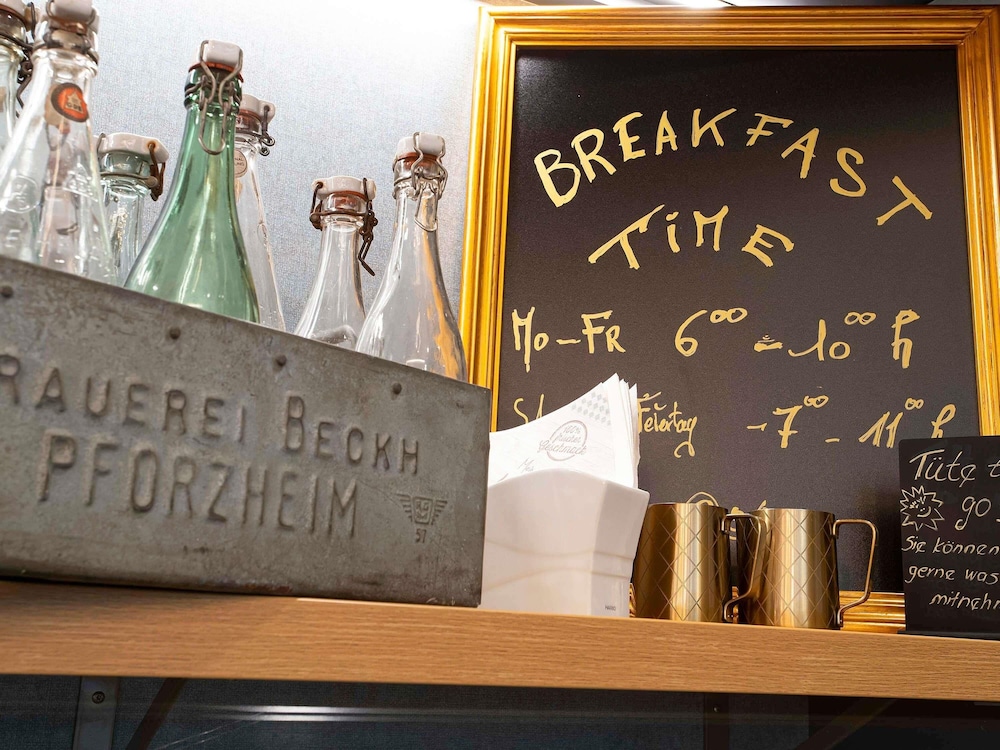 BREAKFAST
TIME
Mo-FR 6⁰⁰ - 10⁰⁰ h
Feiertag - 7⁰⁰ - 11⁰⁰ h
RAUEREI BECKH
PFORZHEIM
57
100%
frischer
Geschmack
Tüte t
go
Sie können
gerne was
mitnehm